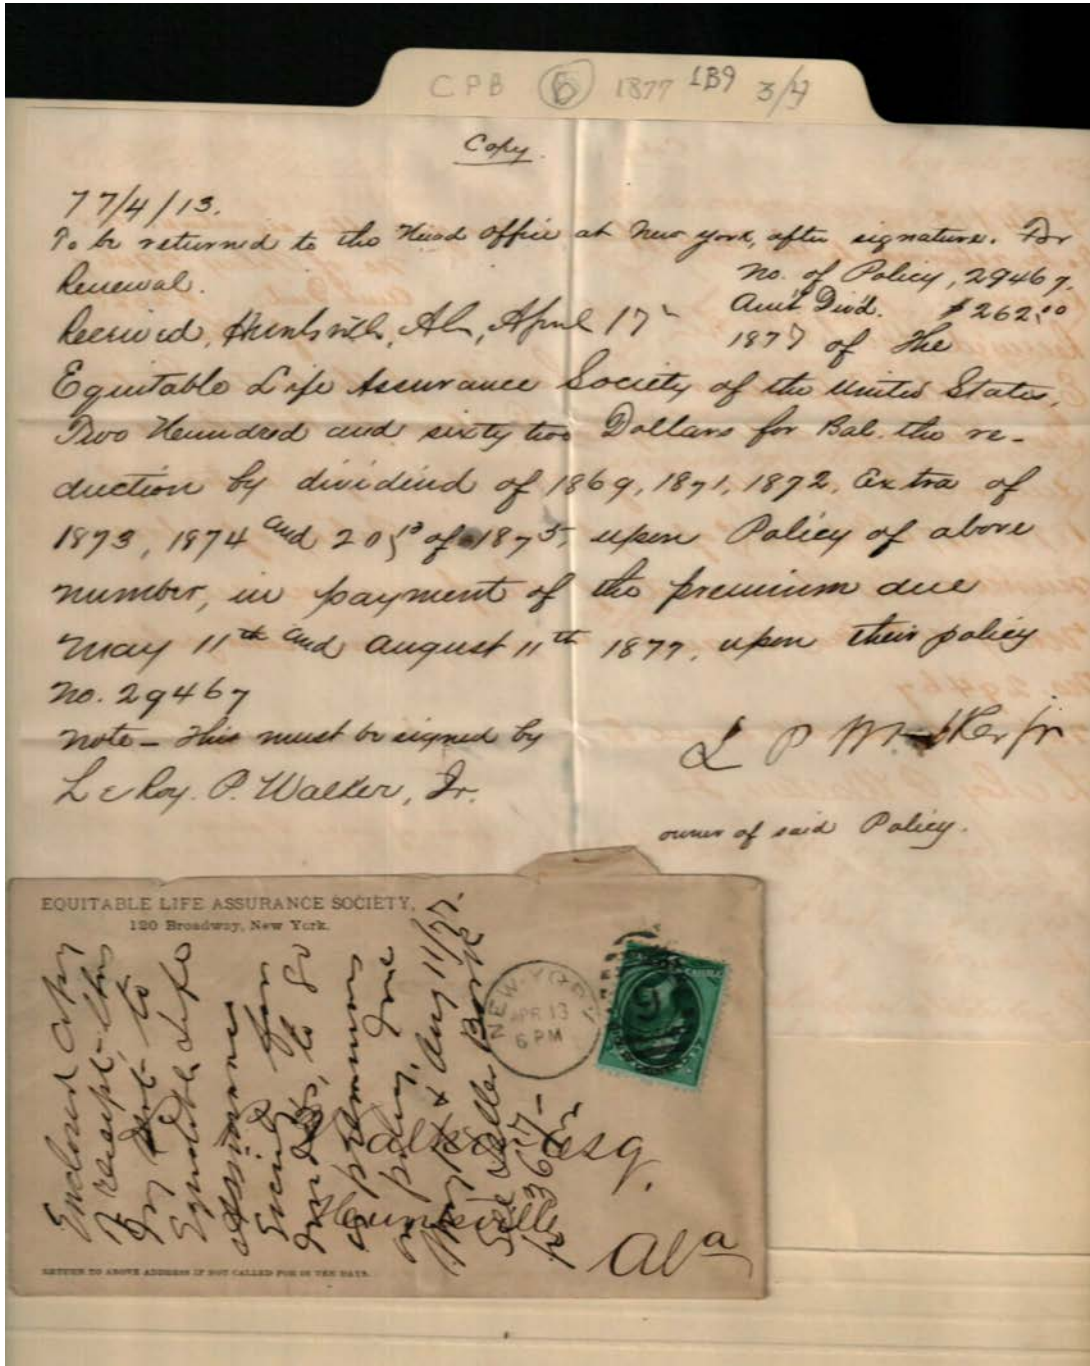 CPB 6 1877 1B9 3/4
Copy.
77/4/13.
To be returned to the Head office at New York, after signature. For
Renewal.
No. of Policy, 29467.
Am't Divd. $262.00
Received, Huntsville, Ala, April 17
1877 of The
Equitable Life Assurance Society of the United States,
Two Hundred and sixty two Dollars for Bal. the re-
duction by dividend of 1869, 1871, 1872, Extra of
1873, 1874 and of 1875, upon Policy of above
number, in payment of the premium due
May 11th and August 11th 1877, upon their policy
No. 29467
Note - This must be signed by
LeRoy. P. Walker, Jr.
L P Walker Jr
owner of said Policy.
EQUITABLE LIFE ASSURANCE SOCIETY,
120 Broadway, New York.
NEW YORK
APR 13
6 PM
Walker Esq.
Huntsville
Ala
Enclosed copy
of receipt this
day sent to
Equitable Life
Assurance
for
to go
premiums
on policy, due
May 11 & Aug 11/77.
See Letter Book
p 367
RETURN TO ABOVE ADDRESS IF NOT CALLED FOR IN TEN DAYS.